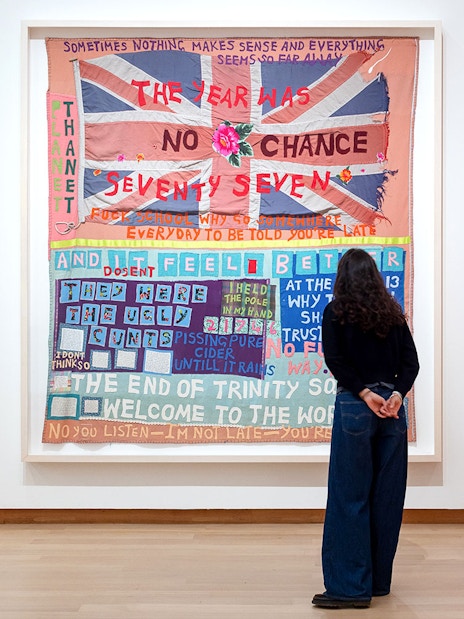 SOMETIMES NOTHING MAKES SENSE AND EVERYTHING
SEEMS SO FAR AWAY
THE YEAR WAS
PLANET
THANET
NO CHANCE
SEVENTY SEVEN
FUCK SCHOOL WHY GO SOMEWHERE
EVERYDAY TO BE TOLD YOU'RE LATE
AND IT FEEL BETTER
DOSENT
THEY WERE
THE UGLY
CUNTS
I HELD
THE POLE
IN MY HAND
AT THE 13
WHY
SH
TRUST
PISSING PURE
CIDER
UNTILL IT RAINS
NO FU
WAY
I DONT
THINK SO
THE END OF TRINITY SQ
WELCOME TO THE WOR
NO YOU LISTEN—IM NOT LATE—YOU'RE